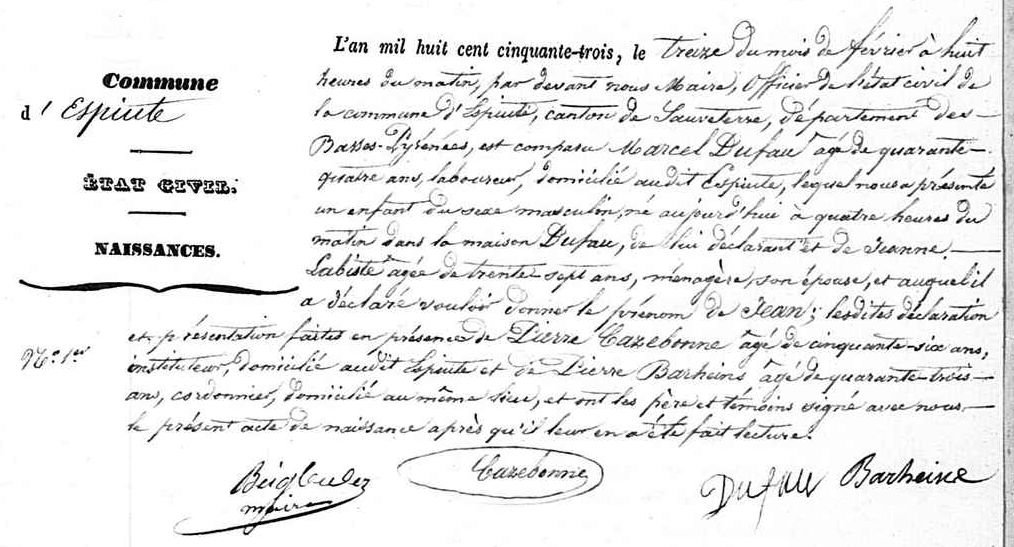 Commune
d'Espiute
ÉTAT CIVIL.
NAISSANCES.
N.o 1er
L'an mil huit cent cinquante-trois, le treize du mois de février à huit
heures du matin, par devant nous Maire, Officier de l'état civil de
la commune d'Espiute, canton de Sauveterre, département des
Basses-Pyrénées, est comparu Marcel Dufau âgé de quarante-
quatre ans, laboureur, domicilié audit Espiute, lequel nous a présenté
un enfant du sexe masculin, né aujourd'hui à quatre heures du
matin dans la maison Dufau, de lui déclarant et de Jeanne
Labiste âgée de trente-sept ans, ménagère, son épouse, et auquel il
a déclaré vouloir donner le prénom de Jean; lesdites déclaration
et présentation faites en présence de Pierre Cazebonne âgé de cinquante-six ans,
instituteur, domicilié audit Espiute et de Pierre Barheins, âgé de quarante-trois
ans, cordonnier, domicilié au même lieu, et ont les père et témoins signé avec nous
le présent acte de naissance après qu'il leur en a été fait lecture.
maire
Cazebonne
Dufau
Barheine